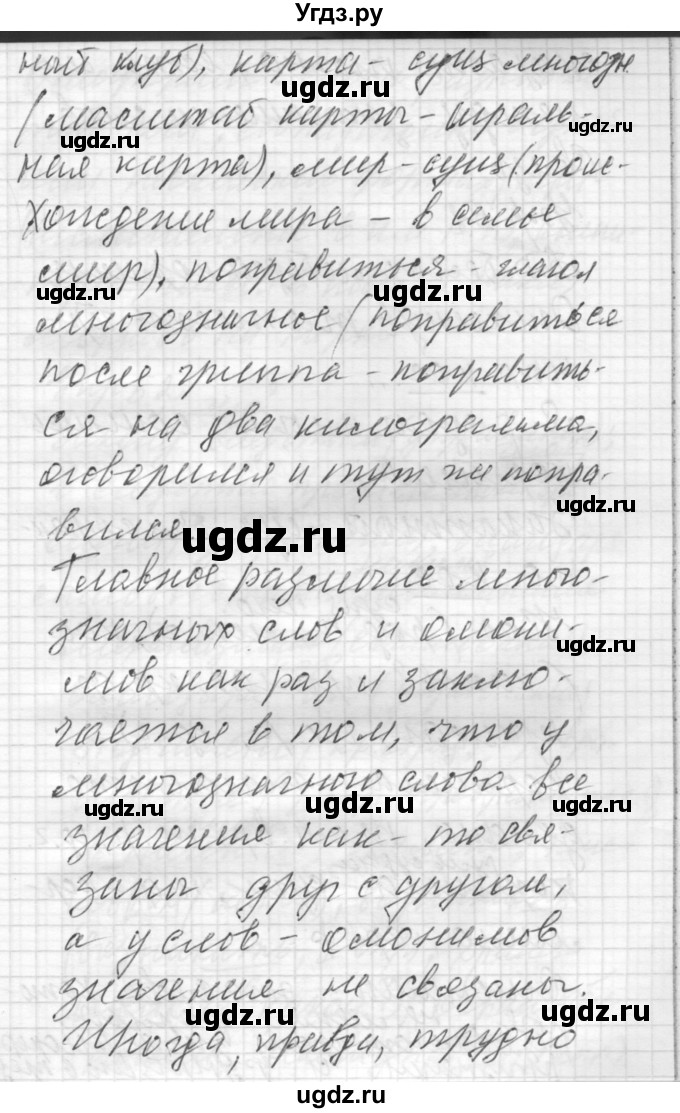 Угдз.ру
ный клуб), карта - сущ многозн.
ugdz.ru
(масштаб карты - играль-
ugdz.ru ugdz.ru
ная карта), мир - сущ (проис-
хождение мира - в семье
мир), поправиться - глагол
ugdz.ru ugdz.ru
многозначное (поправиться
после гриппа - поправить-
ся на два килограмма,
оговорился и тут же попра-
ugdz.ru
вился.
ugdz.ru
Главное различие много-
значных слов и омони-
ugdz.ru
мов как раз и заклю-
чается в том, что у
многозначного слова все
ugdz.ru ugdz.ru ugdz.ru
значения как-то свя-
заны друг с другом,
а у слов - омонимов
значения не связаны.
ugdz.ru ugdz.ru
Иногда, правда, трудно
ugdz.ru